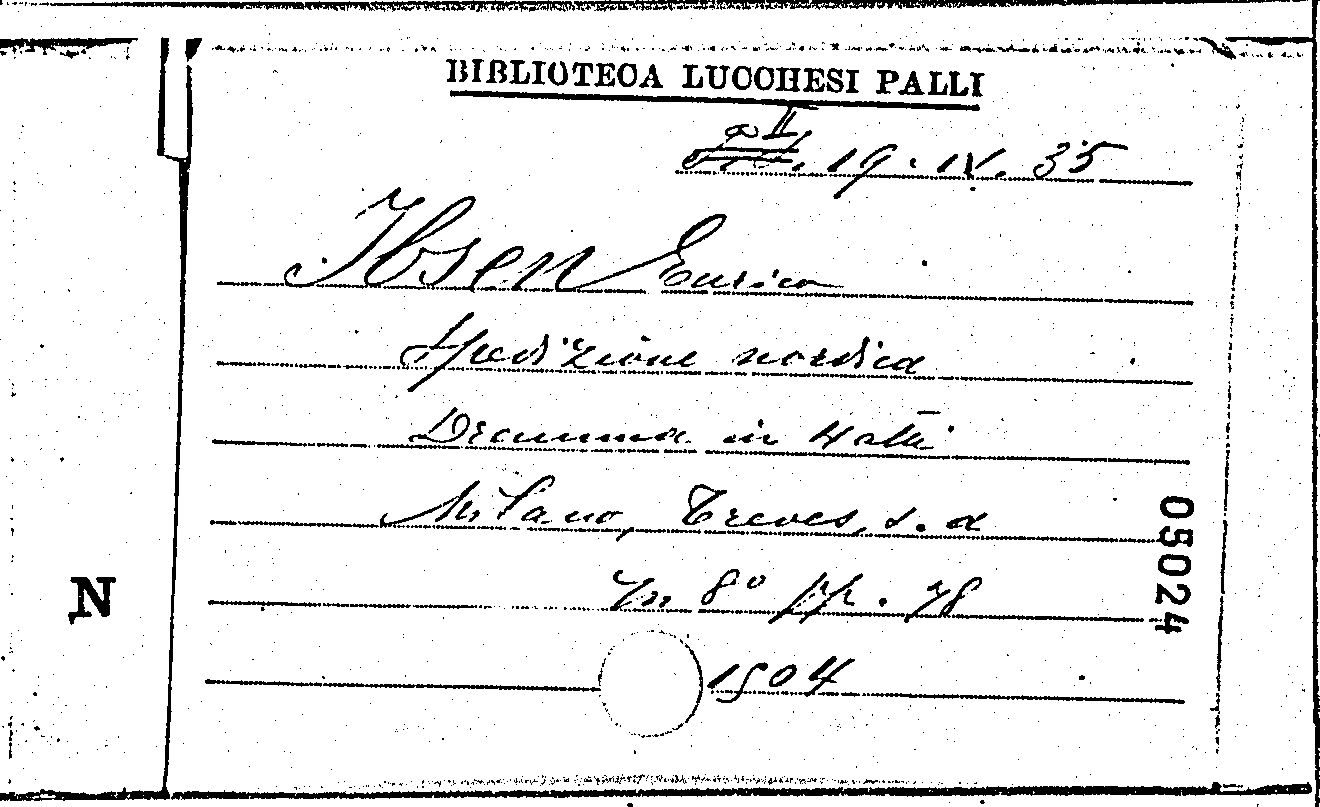 BIBLIOTECA LUCCHESI PALLI
II
19. IV. 35
Ibsen Enrico
Spedizione nordica
Dramma in 4 atti
Milano, Treves, s. d
In 8° pp. 78
1904
N
05024